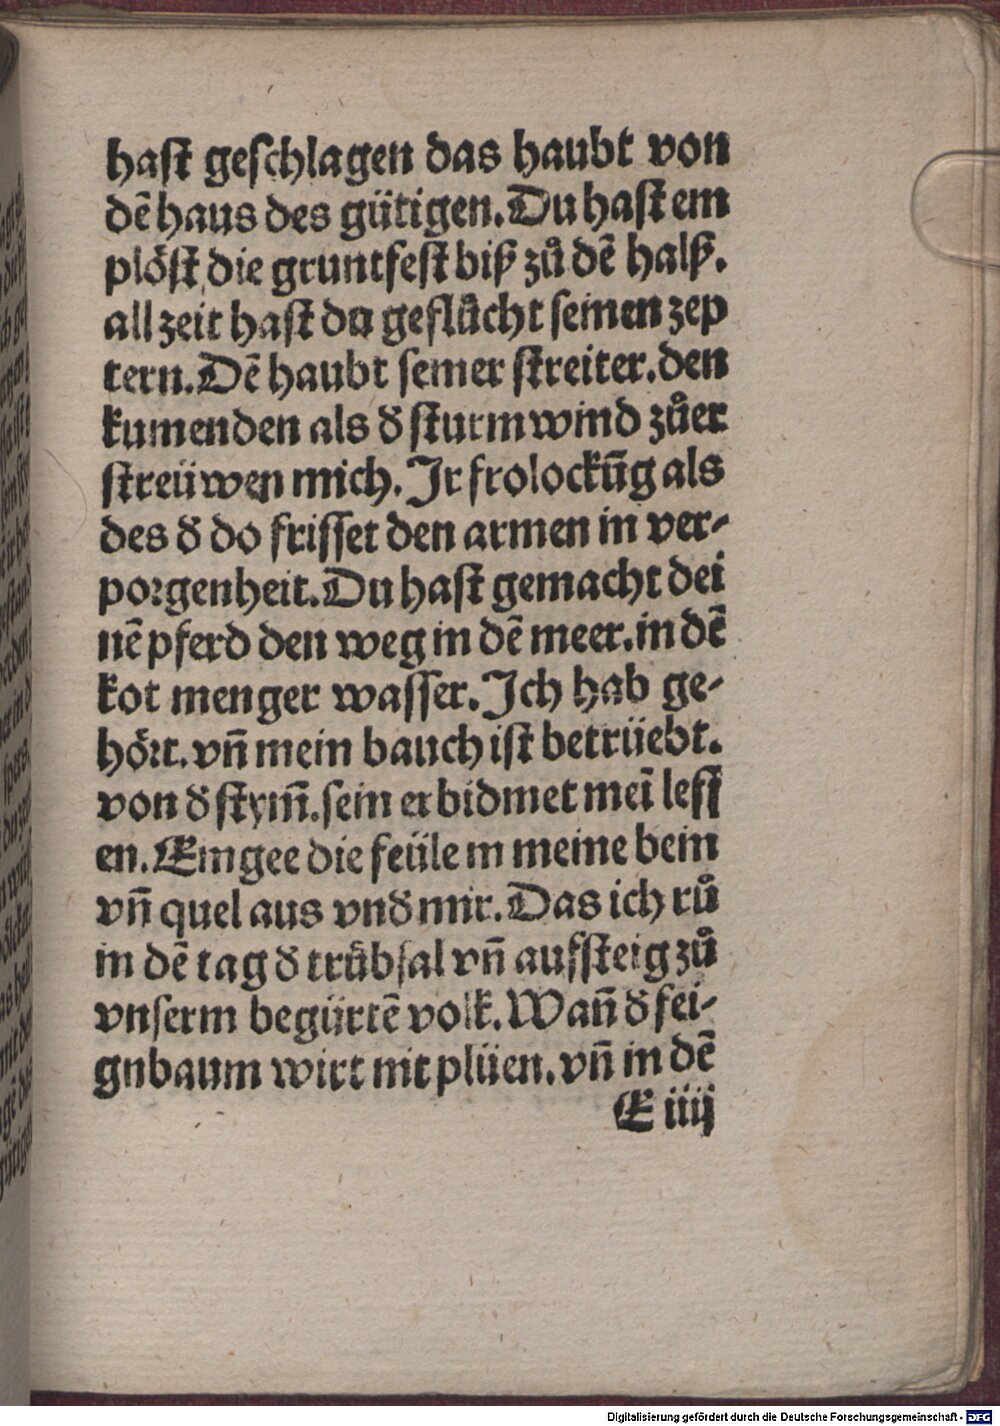 haſt geſchlagen das haubt von
dē haus des gütigen. Du haſt em
plöſt die gruntfeſt biß zů dē halß.
all zeit haſt du geflůcht ſeinen zep
tern. Dē haubt ſeiner ſtreiter. den
kumenden als đ ſturmwind zů er
ſtreüwen mich. Ir frolockūg als
des đ do friſſet den armen in ver-
porgenheit. Du haſt gemacht dei
nē pferd den weg in dē meer. in dē
kot menger waſſer. Ich hab ge-
hört. vn̄ mein bauch iſt betrüebt.
von đ ſtym̄. ſein erbidmet meī leff
en. Ein gee die feüle in meine bein
vn̄ quel aus vnđ mir. Das ich rů
in dē tag đ trůbſal vn̄ aufſteig zů
vnſerm begürtē volk. Wan̄ đ fei-
gnbaum wirt nit plüen. vn̄ in dē
E iiij
Digitalisierung gefördert durch die Deutsche Forschungsgemeinschaft - DFG